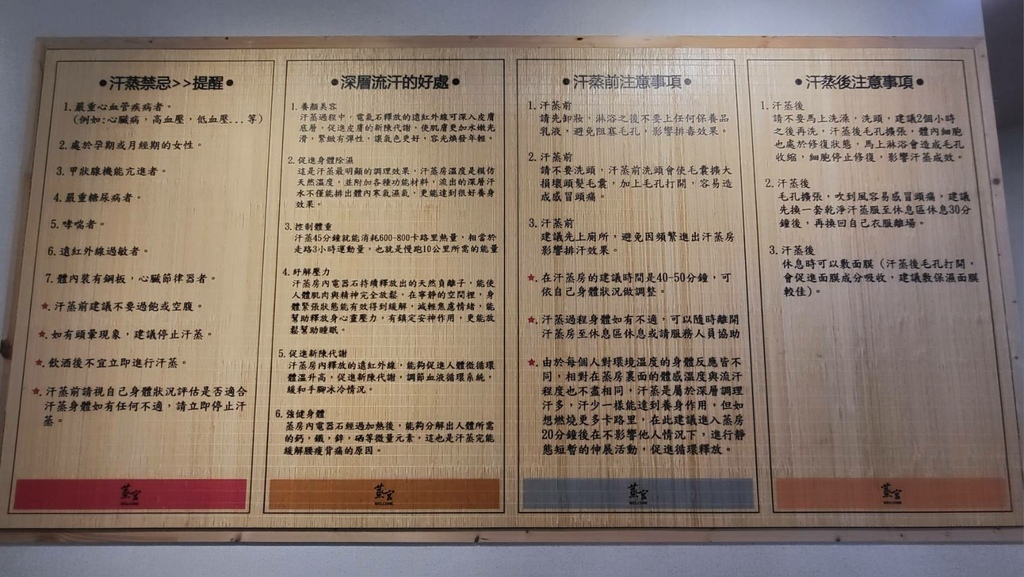 ●汗蒸禁忌>>提醒●
1.嚴重心血管疾病者。
(例如:心臟病,高血壓,低血壓...等)
2.處於孕期或月經期的女性。
3.甲狀腺機能亢進者。
4.嚴重糖尿病者。
5.哮喘者。
6.遠紅外線過敏者。
7.體內裝有鋼板,心臟節律器者。
★.汗蒸前建議不要過飽或空腹。
★.如有頭暈現象,建議停止汗蒸。
★.飲酒後不宜立即進行汗蒸。
★.汗蒸前請視自己身體狀況評估是否適合
汗蒸身體如有任何不適,請立即停止汗
蒸。
蒸宮
●深層流汗的好處●
1.養顏美容
汗蒸過程中,電氣石釋放的遠紅外線可深入皮膚
底層,促進皮膚的新陳代謝,使肌膚更加水嫩光
滑,緊緻有彈性,讓氣色更好,容光煥發年輕。
2.促進身體除濕
這是汗蒸最明顯的調理效果,汗蒸房溫度是模仿
天然溫度,並附加各種功能材料,流出的深層汗
水不僅能排出體內寒氣濕氣,更能達到很好養身
效果。
3.控制體重
汗蒸45分鐘就能消耗600-800卡路里熱量,相當於
走路3小時運動量,也就是慢跑10公里所需的能量
4.紓解壓力
汗蒸房內電器石持續釋放出的天然負離子,能使
人體肌肉與精神完全放鬆,在寧靜的空間裡,身
體緊張狀態能有效得到緩解,減輕焦慮情緒,能
幫助釋放身心靈壓力,有鎮定安神作用,更能放
鬆幫助睡眠。
5.促進新陳代謝
汗蒸房內釋放的遠紅外線,能夠促進人體微循環
體溫升高,促進新陳代謝,調節血液循環系統,
緩和手腳冰冷情況。
6.強健身體
蒸房內電器石經過加熱後,能夠分解出人體所需
的鈣,鐵,鋅,硒等微量元素,這也是汗蒸完能
緩解腰痠背痛的原因。
蒸宮
●汗蒸前注意事項●
1.汗蒸前
請先卸妝,淋浴之後不要上任何保養品
乳液,避免阻塞毛孔,影響排毒效果,
2.汗蒸前
請不要洗頭,汗蒸前洗頭會使毛囊擴大
損壞頭髮毛囊,加上毛孔打開,容易造
成感冒頭痛。
3.汗蒸前
建議先上廁所,避免因頻繁進出汗蒸房
影響排汗效果。
★.在汗蒸房的建議時間是40-50分鐘,可
依自己身體狀況做調整。
★.汗蒸過程身體如有不適,可以隨時離開
汗蒸房至休息區休息或請服務人員協助
★.由於每個人對環境溫度的身體反應皆不
同,相對在蒸房裏面的體感溫度與流汗
程度也不盡相同,汗蒸是屬於深層調理
汗多,汗少一樣能達到養身作用,但如
想燃燒更多卡路里,在此建議進入蒸房
20分鐘後在不影響他人情況下,進行靜
態短暫的伸展活動,促進循環釋放。
蒸宮
●汗蒸後注意事項●
1.汗蒸後
請不要馬上洗澡,洗頭,建議2個小時
之後再洗,汗蒸後毛孔擴張,體內細胞
也處於修復狀態,馬上淋浴會造成毛孔
收縮,細胞停止修復,影響汗蒸成效。
2.汗蒸後
毛孔擴張,吹到風容易感冒頭痛,建議
先換一套乾淨汗蒸服至休息區休息30分
鐘後,再換回自己衣服離場。
3.汗蒸後
休息時可以敷面膜(汗蒸後毛孔打開,
會促進面膜成分吸收,建議敷保濕面膜
較佳)。
蒸宮